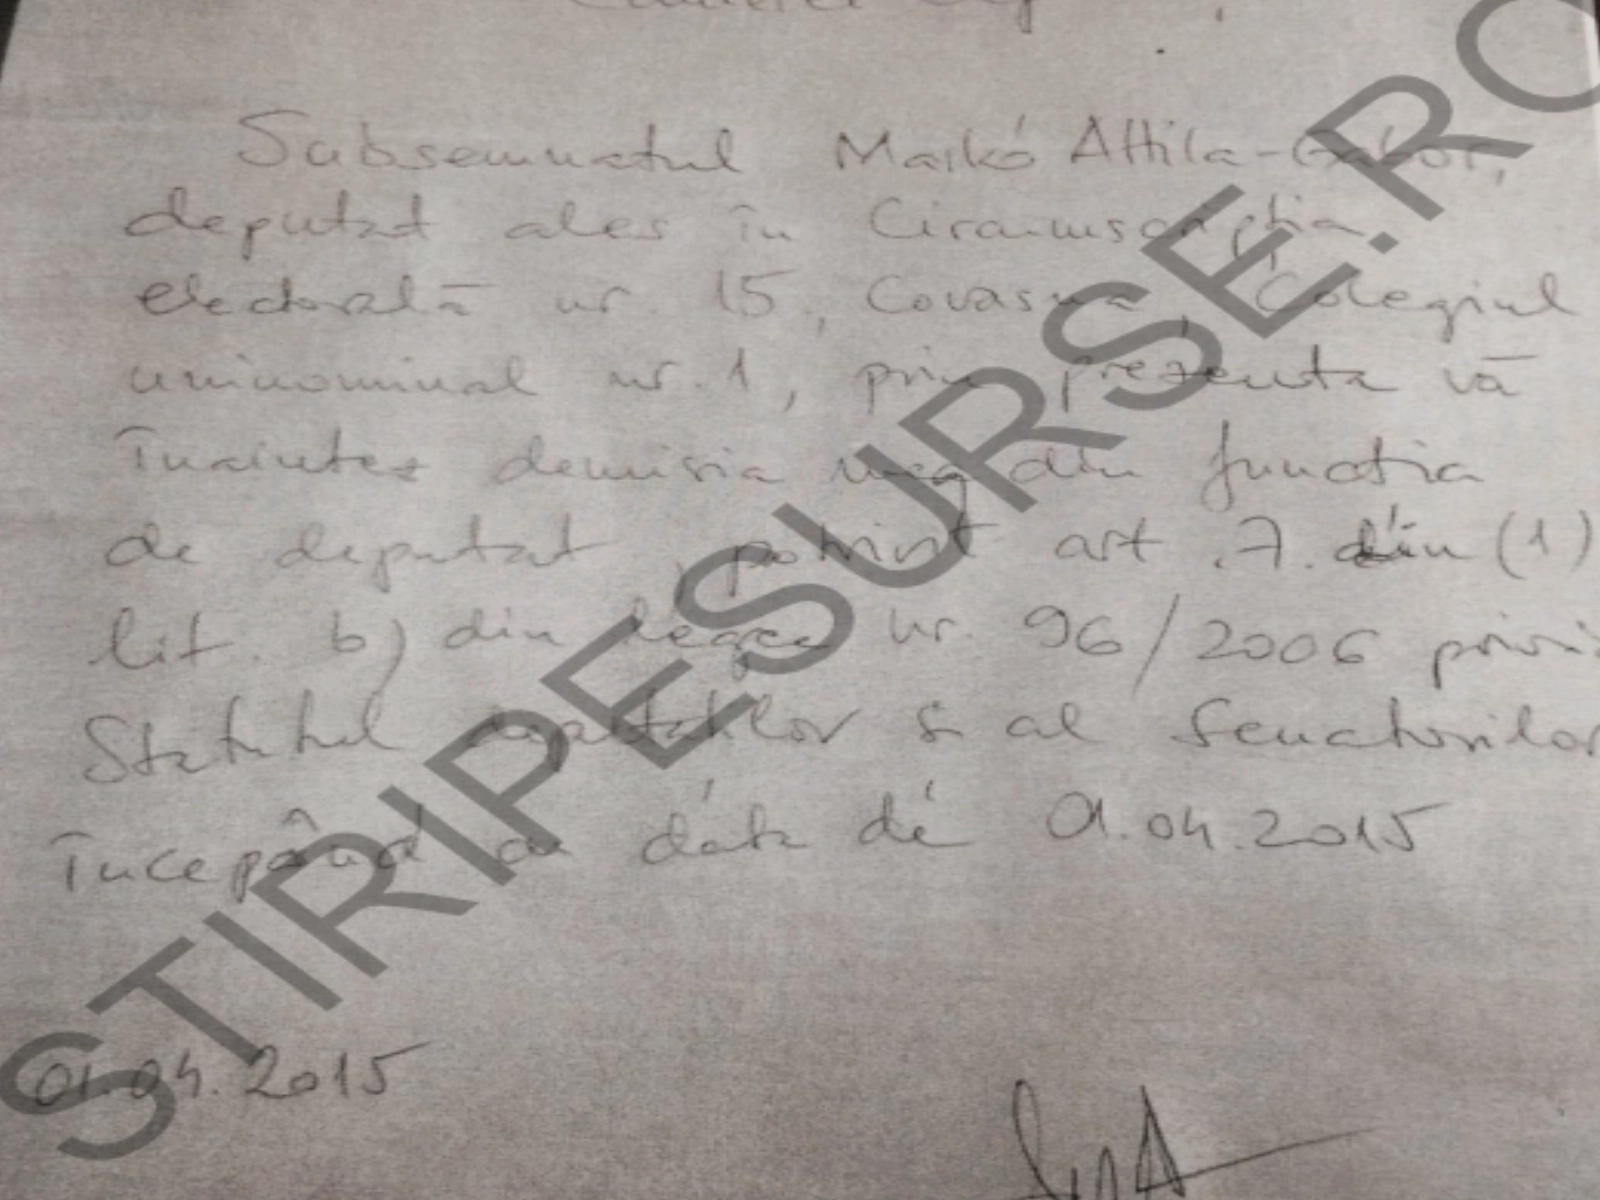 Subsemnatul Markó Attila-Gábor,
deputat ales în Circumscripția
electorală nr. 15, Covasna, Colegiul
uninominal nr. 1, prin prezenta vă
înaintez demisia mea din funcția
de deputat, potrivit art. 7. din (1)
lit. b) din legea nr. 96/2006 privi
Statutul deputaților și al Senatorilor
începând cu data de 01.04.2015
01.04.2015
STIRIPESURSE.RO